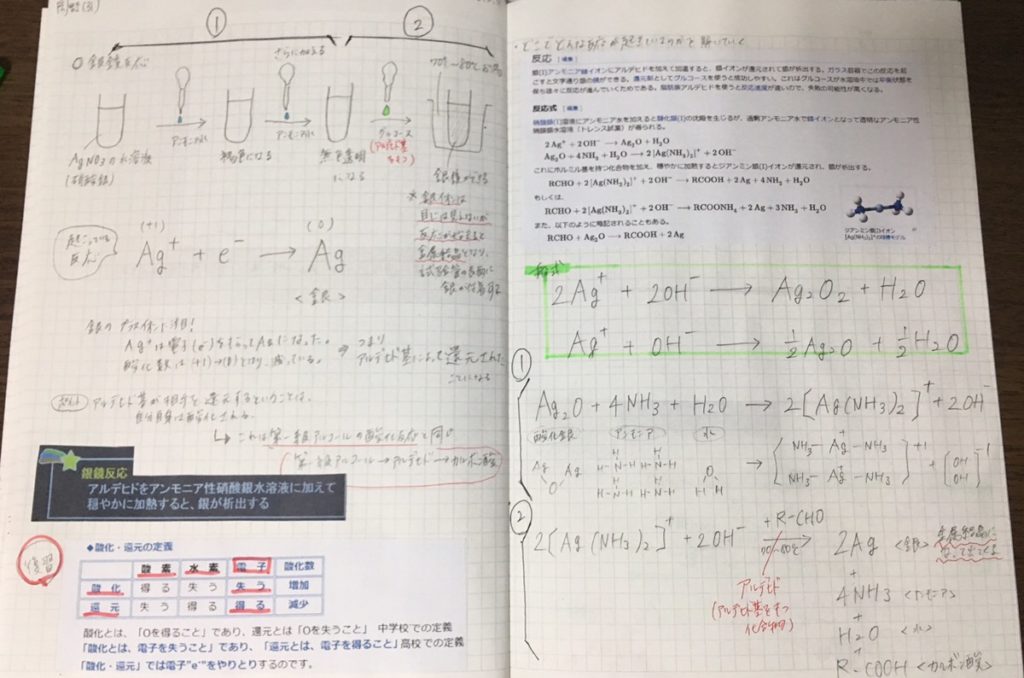 ①
②
○ 銀鏡反応
さらに加える
アンモニア水
アンモニア水
グルコース
(アルデヒド基をもつ)
AgNO₃の水溶液
(硝酸銀)
褐色になる
無色透明
になる
銀鏡ができる
※ 銀体は
目には見えないが
反応が始まると
金属結晶となり、
試験管の表面に
銀が付着する
起こっている
反応
(+1) (0)
Ag⁺ + e⁻ → Ag
<銀>
銀のプラスイオンに注目!
Ag⁺は電子(e⁻)をもらってAgになった。
酸化数は(+1)→(0)となり、減っている。
⇒ つまり
アルデヒド基によって還元された
ことになる
ポイント アルデヒド基が相手を還元するということは、
自分自身は酸化される。
↳ これは第一級アルコールの酸化反応と同じ
(第一級アルコール→アルデヒド→カルボン酸)
銀鏡反応
アルデヒドをアンモニア性硝酸銀水溶液に加えて
穏やかに加熱すると、銀が析出する
復習
◆酸化・還元の定義
酸素 水素 電子 酸化数
酸化 得る 失う 失う 増加
還元 失う 得る 得る 減少
酸化とは、「Oを得ること」であり、還元とは「Oを失うこと」 中学校での定義
「酸化とは、電子を失うこと」であり、「還元とは、電子を得ること」高校での定義
「酸化・還元」では電子"e⁻"をやりとりするのです。
・どこでどんな反応が起きているのかを解いていく
反応 [編集]
銀(I)アンモニア錯イオンにアルデヒドを加えて加温すると、銀イオンが還元されて銀が析出する。ガラス容器でこの反応を起
こすと文字通り銀の鏡ができる。還元剤としてグルコースを使うと成功しやすい。これはグルコースが水溶液中では平衡状態を
保ち徐々に反応が進んでいくためである。脂肪族アルデヒドを使うと反応速度が速いので、失敗の可能性が高くなる。
反応式 [編集]
硝酸銀(I)溶液にアンモニア水を加えると酸化銀(I)の沈殿を生じるが、過剰アンモニア水で錯イオンとなって透明なアンモニア性
硝酸銀水溶液(トレンス試薬)が得られる。
2 Ag⁺ + 2 OH⁻ → Ag₂O + H₂O
Ag₂O + 4 NH₃ + H₂O → 2 [Ag(NH₃)₂]⁺ + 2 OH⁻
これにホルミル基を持つ化合物を加え、穏やかに加熱するとジアンミン銀(I)イオンが還元され、銀が析出する。
RCHO + 2 [Ag(NH₃)₂]⁺ + 2 OH⁻ → RCOOH + 2 Ag + 4 NH₃ + H₂O
もしくは、
RCHO + 2 [Ag(NH₃)₂]⁺ + 2 OH⁻ → RCOONH₄ + 2 Ag + 3 NH₃ + H₂O
また、以下のように略記されることもある。
RCHO + Ag₂O → RCOOH + 2 Ag
ジアンミン銀(I)イオン
[Ag(NH₃)₂]⁺の球棒モデル
2Ag⁺ + 2OH⁻ → Ag₂O₂ + H₂O
Ag⁺ + OH⁻ → ½Ag₂O + ½H₂O
①
Ag₂O + 4NH₃ + H₂O → 2[Ag(NH₃)₂]⁺ + 2OH⁻
酸化銀 アンモニア 水
Ag Ag
O
H-N-H H-N-H
H H
H-N-H H-N-H
H H
O
H H
→ [NH₃-Ag⁺-NH₃
NH₃-Ag⁺-NH₃]⁺¹ + [OH
OH]⁻¹
②
2[Ag(NH₃)₂]⁺ + 2OH⁻
+R-CHO
アルデヒド
(アルデヒド基をもつ
化合物)
2Ag <銀> 金属結晶に
なって出てくる
+
4NH₃ <アンモニア>
+
H₂O <水>
+
R-COOH <カルボン酸>